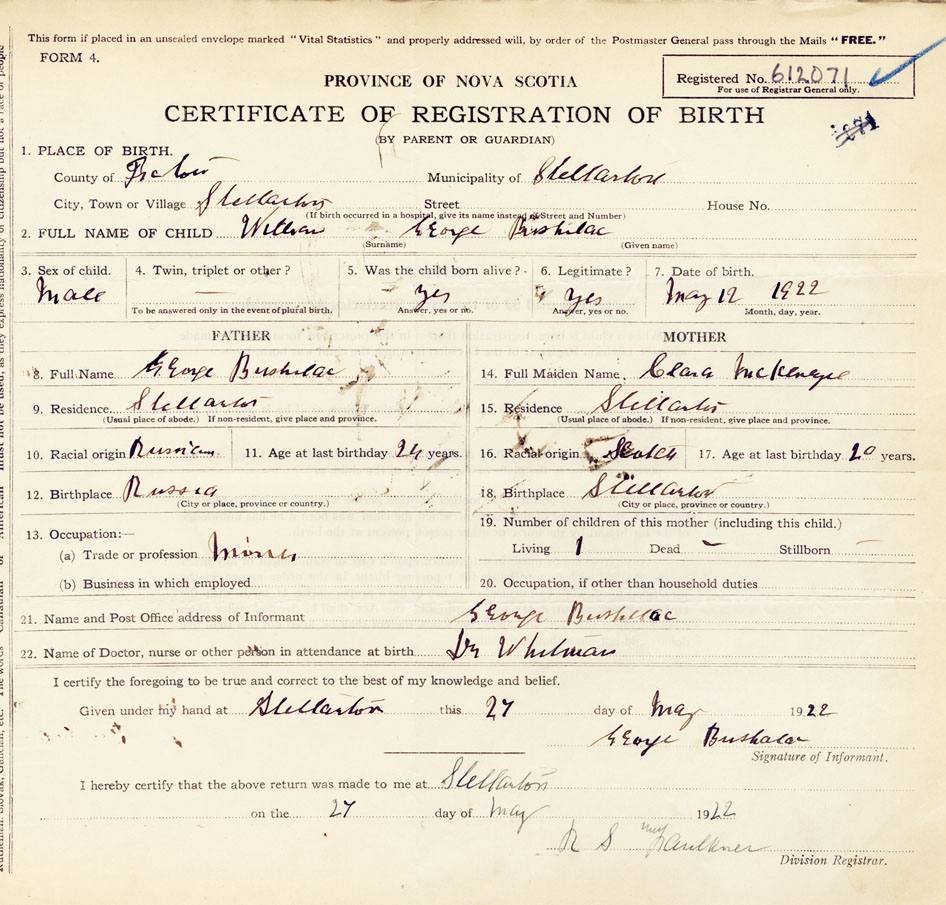 This form if placed in an unsealed envelope marked "Vital Statistics" and properly addressed will, by order of the Postmaster General pass through the Mails "FREE."
FORM 4.
Registered No. 612071
For use of Registrar General only.
PROVINCE OF NOVA SCOTIA
CERTIFICATE OF REGISTRATION OF BIRTH
(BY PARENT OR GUARDIAN)
1. PLACE OF BIRTH.
County of Pictou Municipality of Stellarton
City, Town or Village Stellarton Street House No.
(If birth occurred in a hospital, give its name instead of Street and Number)
2. FULL NAME OF CHILD William George Bushilac
(Surname) (Given name)
3. Sex of child. 4. Twin, triplet or other? 5. Was the child born alive? 6. Legitimate? 7. Date of birth.
Male — yes yes May 12 1922
To be answered only in the event of plural birth. Answer, yes or no. Answer, yes or no. Month, day, year.
FATHER MOTHER
8. Full Name George Bushilac 14. Full Maiden Name Clara McKenzie
9. Residence Stellarton 15. Residence Stellarton
(Usual place of abode.) If non-resident, give place and province. (Usual place of abode.) If non-resident, give place and province.
10. Racial origin Russian 11. Age at last birthday 24 years. 16. Racial origin Scotch 17. Age at last birthday 20 years.
12. Birthplace Russia 18. Birthplace Stellarton
(City or place, province or country.) (City or place, province or country.)
13. Occupation:— 19. Number of children of this mother (including this child.)
(a) Trade or profession Miner Living 1 Dead – Stillborn –
(b) Business in which employed 20. Occupation, if other than household duties
21. Name and Post Office address of Informant George Bushilac
22. Name of Doctor, nurse or other person in attendance at birth Dr Whitman
I certify the foregoing to be true and correct to the best of my knowledge and belief.
Given under my hand at Stellarton this 27 day of May 1922
George Bushala
Signature of Informant.
I hereby certify that the above return was made to me at Stellarton
on the 27 day of May 1922
R S Faulkner
Division Registrar.